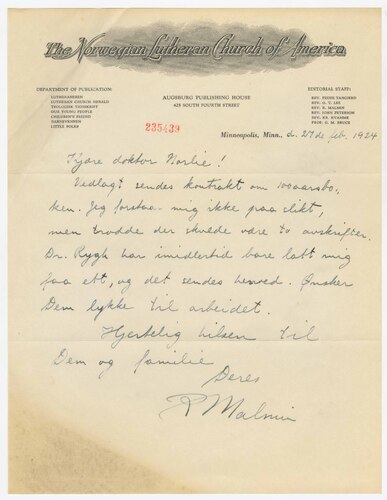 The Norwegian Lutheran Church of America
DEPARTMENT OF PUBLICATION:
LUTHERANEREN
LUTHERAN CHURCH HERALD
TEOLOGISK TIDSSKRIFT
OUR YOUNG PEOPLE
CHILDREN'S FRIEND
BARNEVENNEN
LITTLE FOLKS
AUGSBURG PUBLISHING HOUSE
425 SOUTH FOURTH STREET
EDITORIAL STAFF:
REV. PEDER TANGJERD
REV. G. T. LEE
REV. R. MALMIN
REV. JOHN PETERSON
REV. KR. KVAMME
PROF. G. M. BRUCE
235439
Minneapolis, Minn., d. 27de feb. 1924
Kjære doktor Norlie!
Vedlagt sendes kontrakt om 100aarsbo,
ken. Jeg forstaar mig ikke paa slikt,
men trodde der skulde være to avskrifter.
Dr. Rygh har imidlertid bare latt mig
faa ett, og det sendes herved. Ønsker
Dem lykke til arbeidet.
Hjertelig hilsen til
Dem og familie
Deres
R Malmin